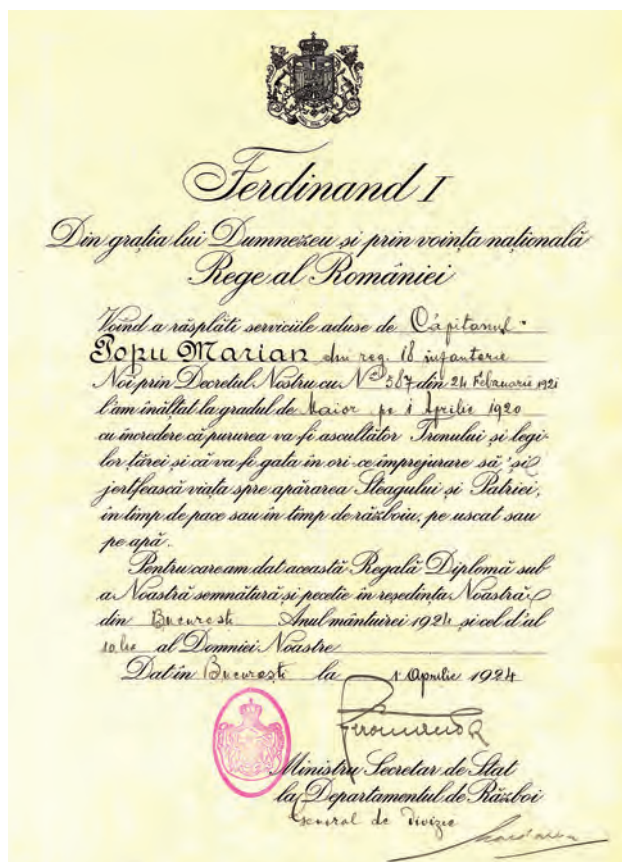 Ferdinand I
Din grația lui Dumnezeu și prin voința națională
Rege al României
Voind a răsplăti serviciile aduse de Căpitanul
Popu Marian din reg. 18 infanterie
Noi prin Decretul Nostru cu No 587 din 24 Februarie 1921
l'am înălțat la gradul de Maior pe 1 Aprilie 1920
cu încredere că pururea va fi ascultător Tronului și legi-
lor țărei și că va fi gata în ori-ce împrejurare să 'și
jertfească viața spre apărarea Steagului și Patriei,
în timp de pace sau în timp de războiu, pe uscat sau
pe apă.
Pentru care am dat această Regală Diplomă sub
a Noastră semnătură și pecetie în reședința Noastră
din București Anul mântuirei 1924 și cel d'al
al Domniei Noastre
Dat în București la 1 Aprilie 1924
Ferdinand
Ministru Secretar de Stat
la Departamentul de Război
General de divizie